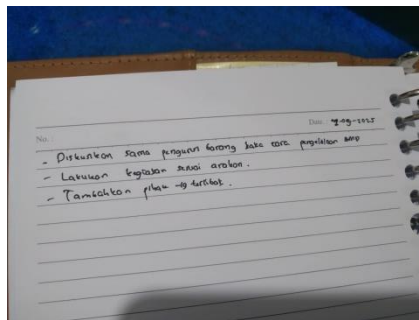 No. :
Date 7-09-2025
- Diskusikan sama pengurus barang baku cara pengelolaan BMP
- Lakukan kegiatan sesuai arahan.
- Tambahkan pihak → terlibat.